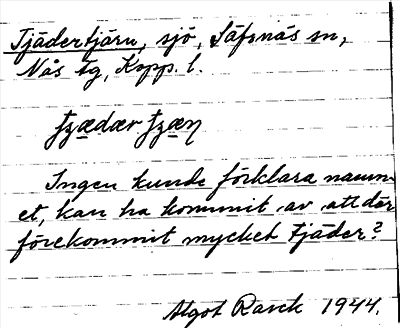 Tjädertjärn, sjö, Säfsnäs sn,
Nås tg, Kopp. l.
Ingen kunde förklara namn-
et, kan ha kommit av att där
förekommit mycket tjäder?
Algot Rasck 1944.